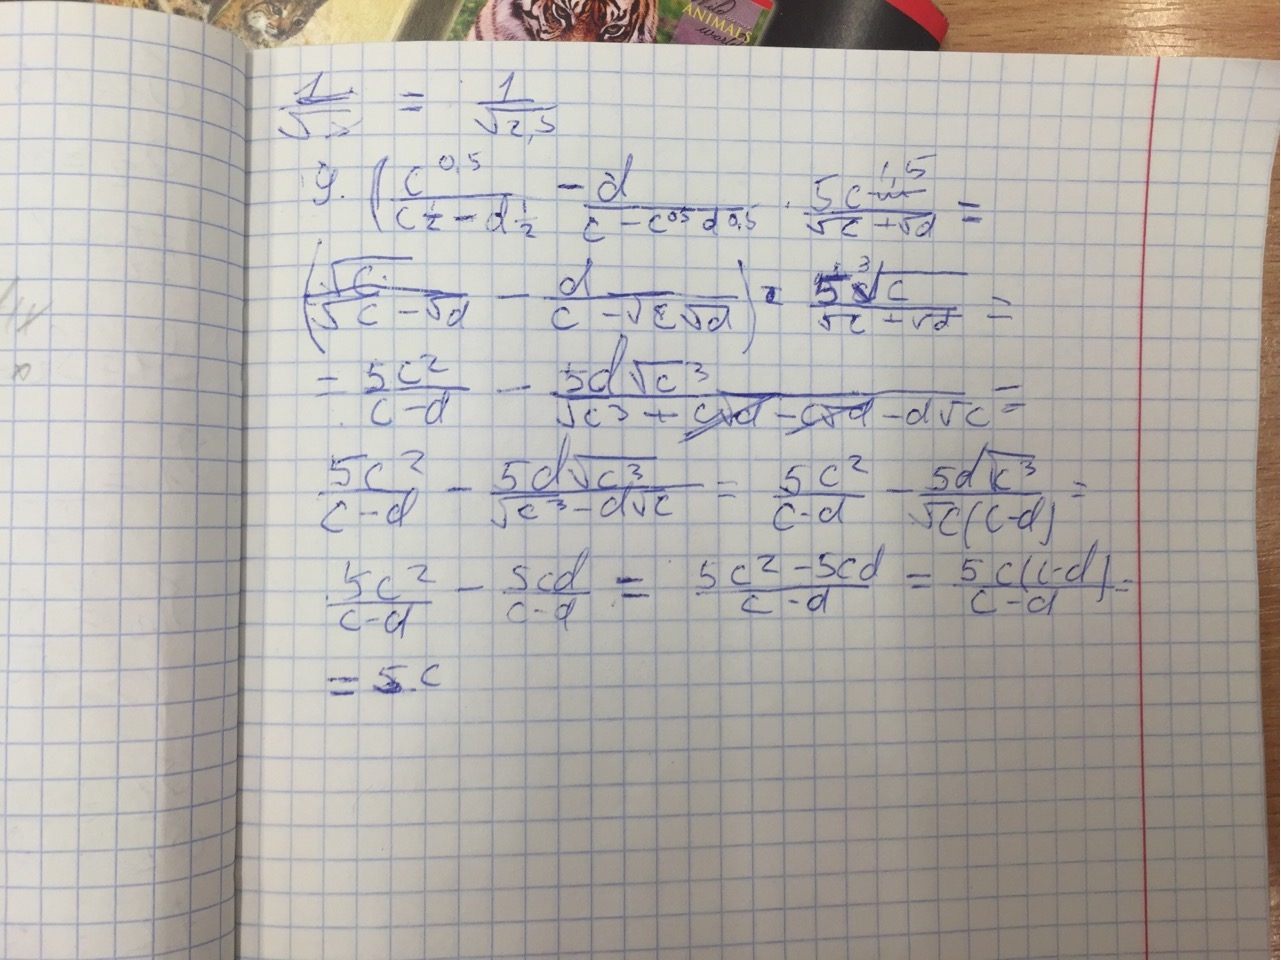 ANIMALS
world
1/√ = 1/√2,5
9. (c^0,5/(c^½ - d^½) - d/(c - c^0,5 d^0,5) · 5c^1,5/(√c + √d) =
(√c/(√c - √d) - d/(c - √c√d)) · 5 ³√c/(√c + √d) =
= 5c²/(c-d) - 5d√c³/(√c³ + c√d - c√d - d√c) =
5c²/(c-d) - 5d√c³/(√c³ - d√c) = 5c²/(c-d) - 5d√c³/(√c(c-d)) =
5c²/(c-d) - 5cd/(c-d) = (5c² - 5cd)/(c-d) = 5c(c-d)/(c-d) =
= 5c